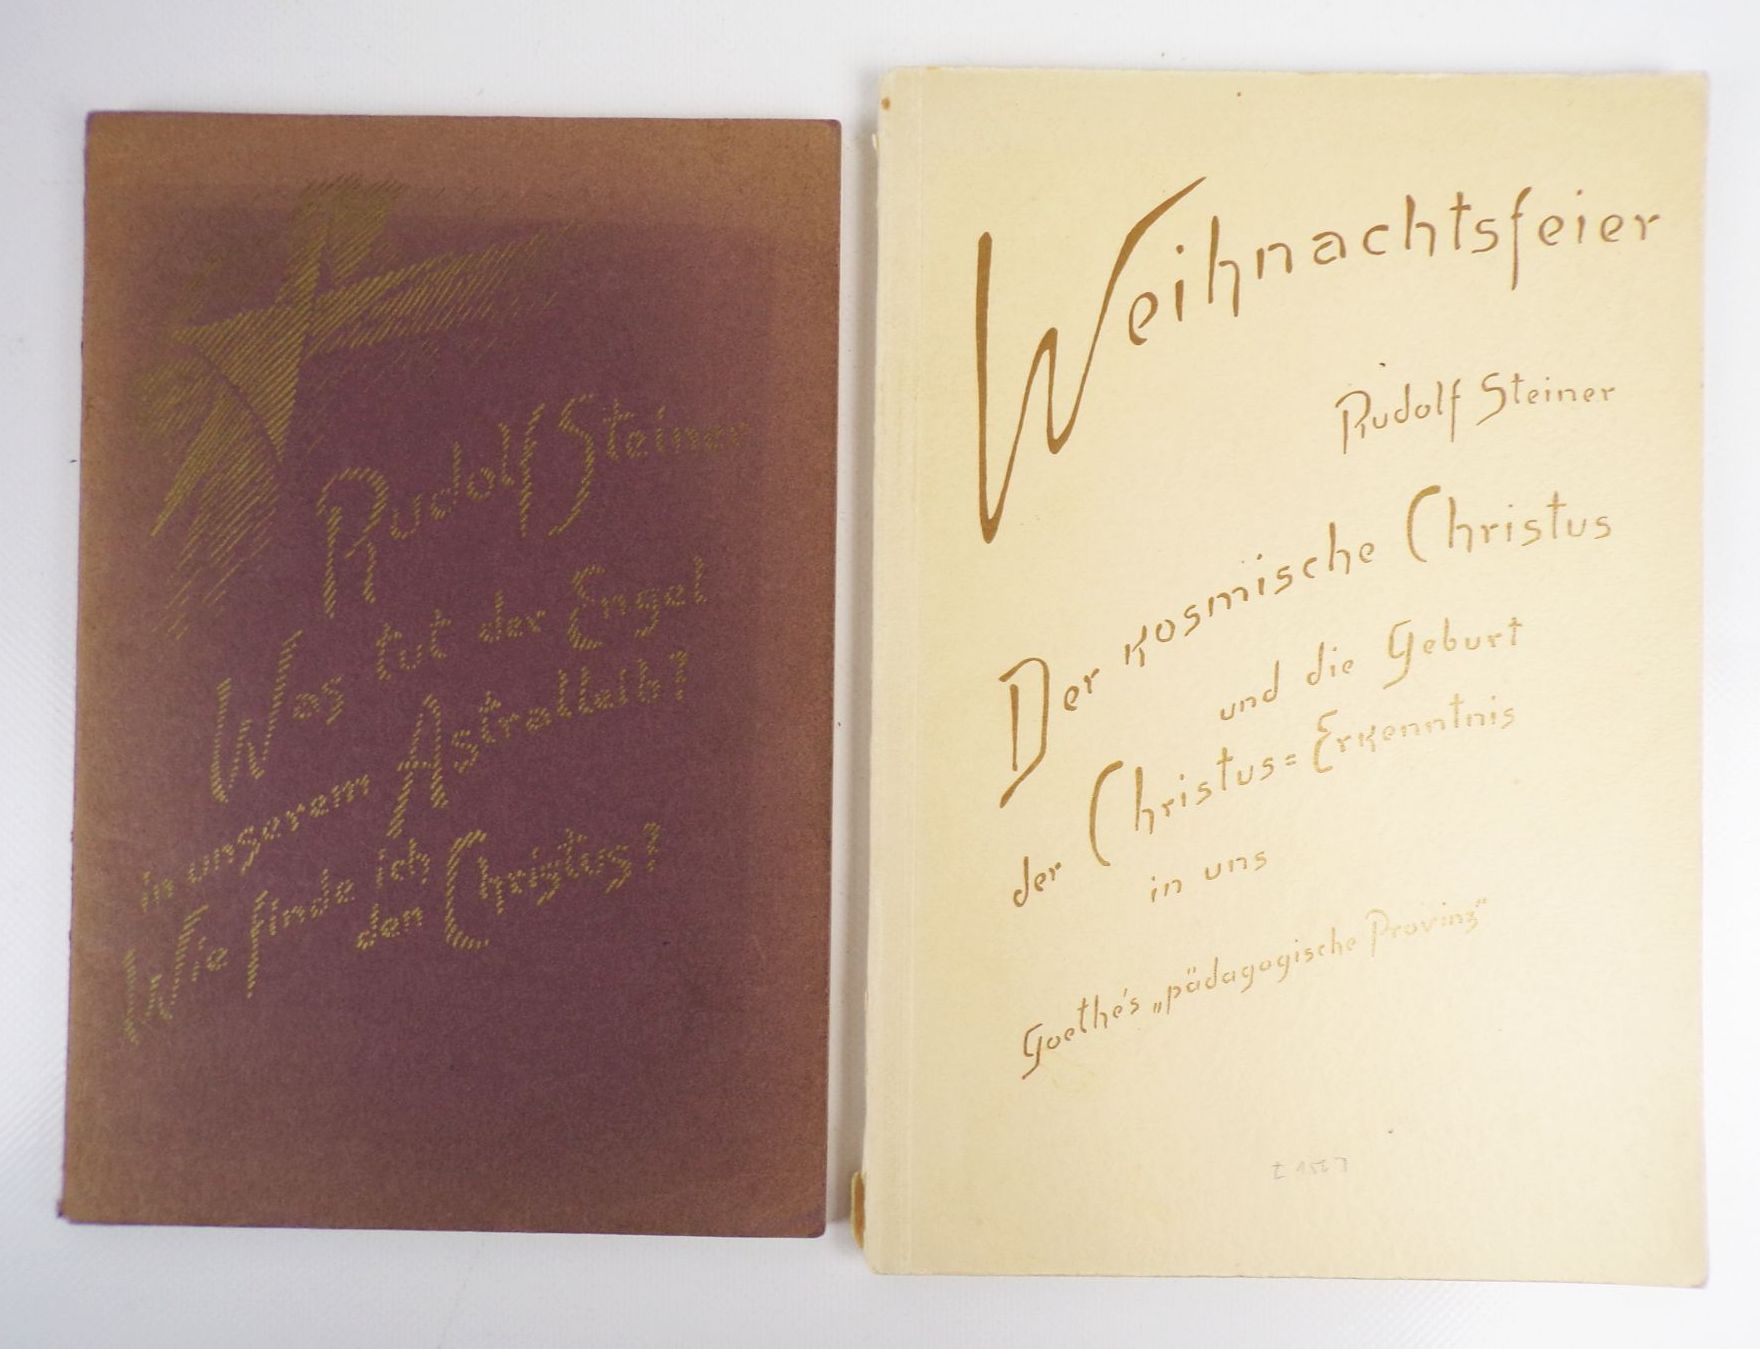 Rudolf Steiner
Was tut der Engel
in unserem Astralleib?
Wie finde ich
den Christus?
Weihnachtsfeier
Rudolf Steiner
Der kosmische Christus
und die Geburt
der Christus=Erkenntnis
in uns
Goethe's „pädagogische Provinz"